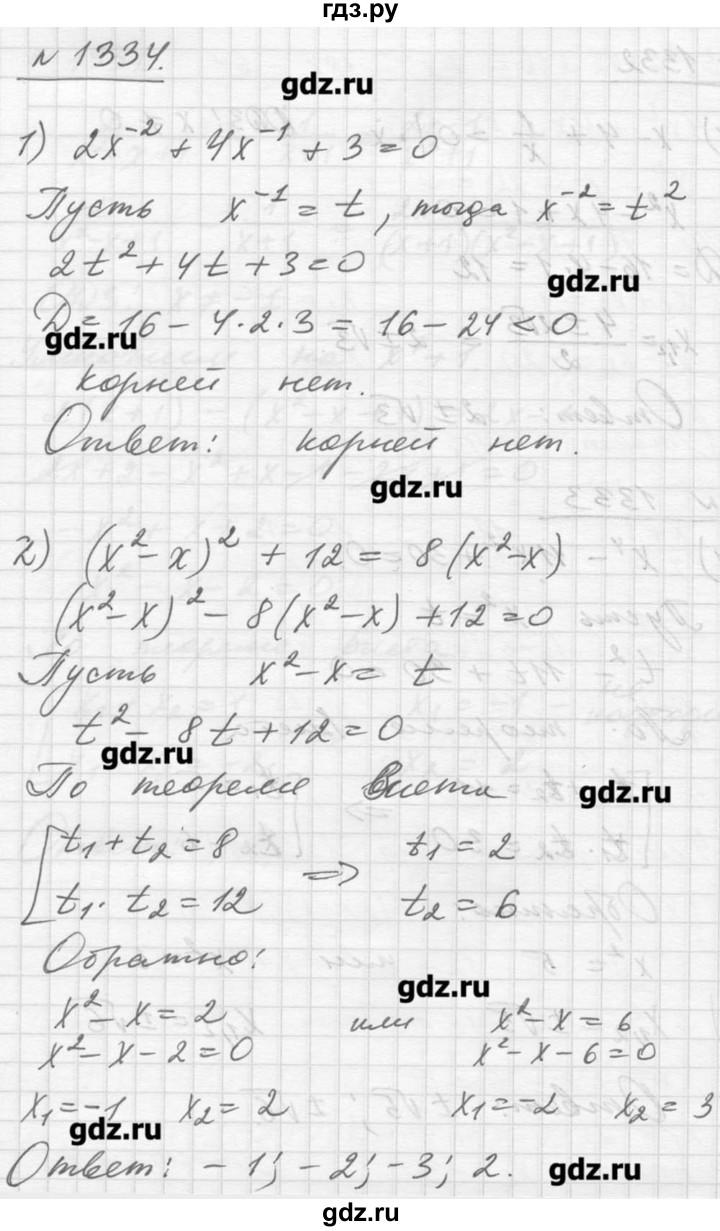 гдз.ру
№ 1334.
gdz.ru
1) 2x⁻² + 4x⁻¹ + 3 = 0
Пусть x⁻¹ = t, тогда x⁻² = t²
2t² + 4t + 3 = 0
gdz.ru
D = 16 - 4·2·3 = 16 - 24 < 0
gdz.ru
корней нет.
Ответ: корней нет.
gdz.ru
2) (x² - x)² + 12 = 8(x² - x)
(x² - x)² - 8(x² - x) + 12 = 0
Пусть x² - x = t
t² - 8t + 12 = 0
gdz.ru
По теореме Виета
gdz.ru
t₁ + t₂ = 8 ⇒ t₁ = 2
t₁ · t₂ = 12 t₂ = 6
Обратно:
gdz.ru
x² - x = 2 или x² - x = 6
x² - x - 2 = 0 x² - x - 6 = 0
x₁ = -1 x₂ = 2 x₁ = -2 x₂ = 3
gdz.ru
Ответ: -1; -2; -3; 2.
gdz.ru
gdz.ru